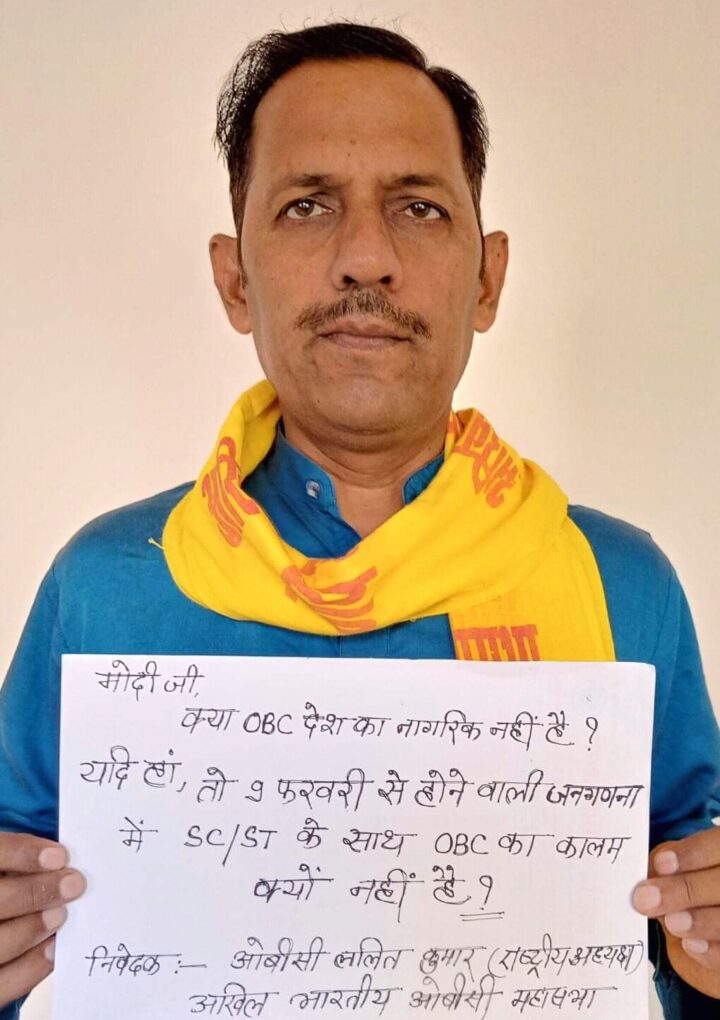 मोदी जी,
क्या OBC देश का नागरिक नहीं है ?
यदि हां, तो 9 फरवरी से होने वाली जनगणना
में SC/ST के साथ OBC का कालम
क्यों नहीं है ?
निवेदक :— ओबीसी ललित कुमार (राष्ट्रीय अध्यक्ष)
अखिल भारतीय ओबीसी महासभा